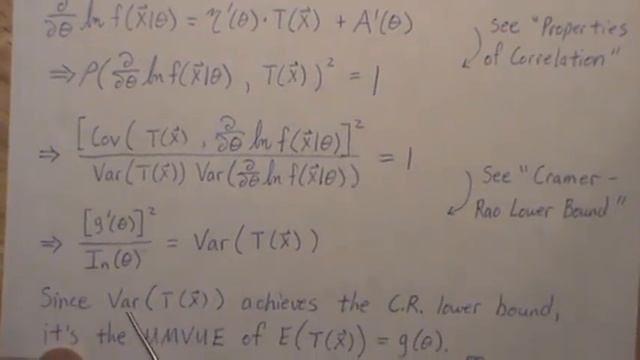 ∂/∂θ ln f(x⃗|θ) = η'(θ)·T(x⃗) + A'(θ)
See "Properties of Correlation"
⇒ ρ(∂/∂θ ln f(x⃗|θ), T(x⃗))² = 1
⇒ [Cov(T(x⃗), ∂/∂θ ln f(x⃗|θ)]² / Var(T(x⃗)) Var(∂/∂θ ln f(x⃗|θ)) = 1
See "Cramer-
Rao Lower Bound"
⇒ [g'(θ)]² / Iₙ(θ) = Var(T(x⃗))
Since Var(T(x⃗)) achieves the C.R. lower bound,
it's the UMVUE of E(T(x⃗)) = g(θ).